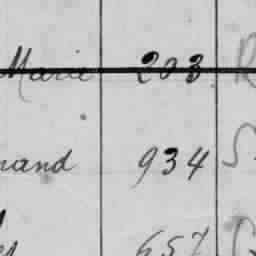 Marie 203 R
nand 934 S
657